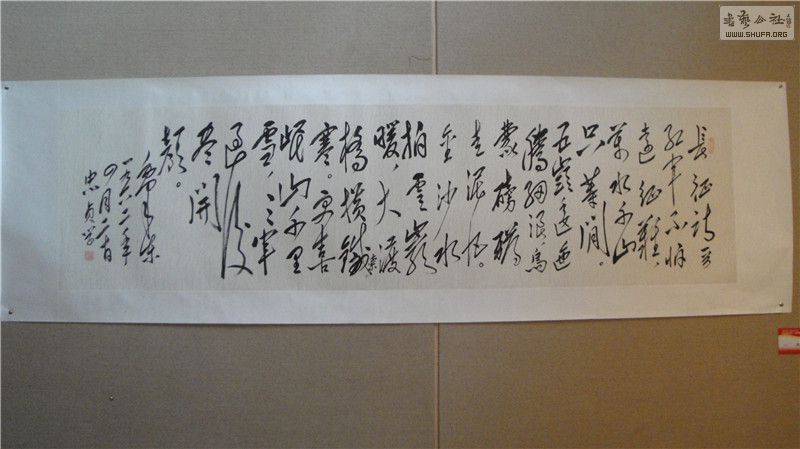 長征詩
紅軍不怕
遠征難，
萬水千山
只等閒。
五嶺逶迤
騰細浪，烏
蒙磅礴
走泥丸。
金沙水
拍雲巖
暖，大渡
橋橫鐵索
寒。更喜
岷山千里
雪，三軍
過後
盡開
顏。
一九六二年
四月二十日
書藝公社
WWW.SHUFA.ORG